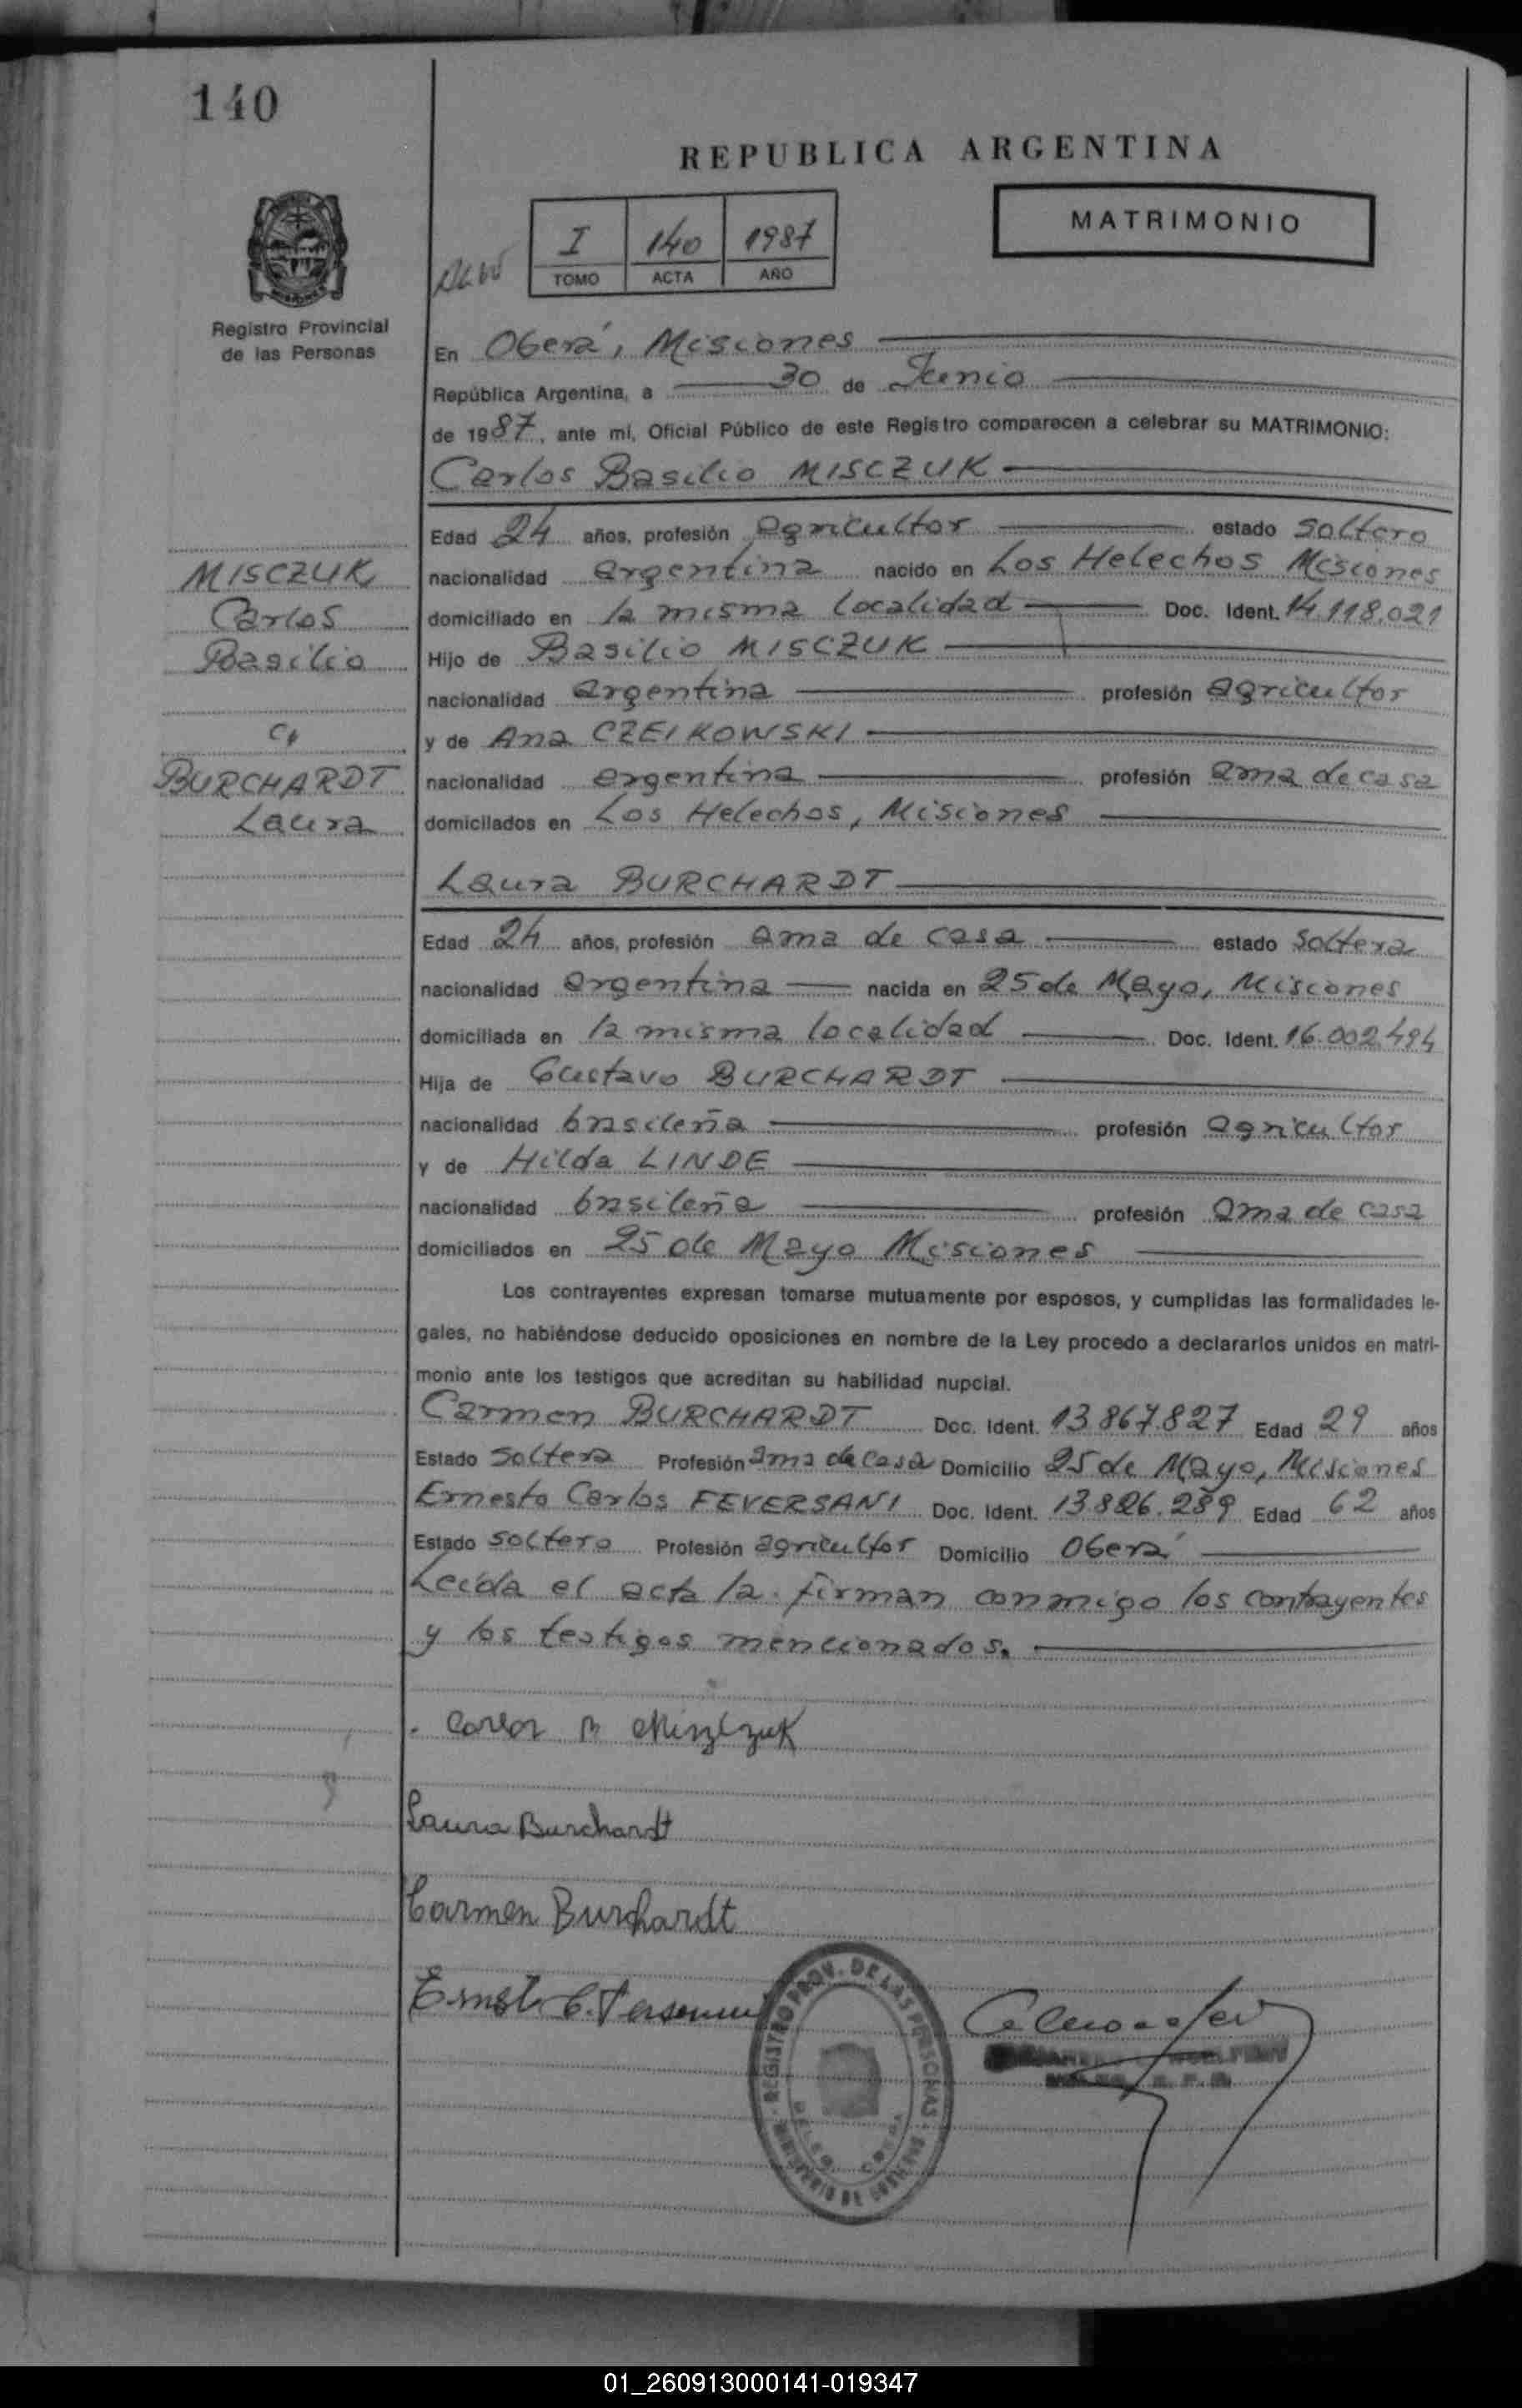 140
REPUBLICA ARGENTINA
MATRIMONIO
I 140 1987
TOMO ACTA AÑO
Registro Provincial
de las Personas
En Oberá, Misiones
República Argentina, a 30 de Junio
de 1987, ante mi, Oficial Público de este Registro comparecen a celebrar su MATRIMONIO:
Carlos Basilio MISCZUK
Edad 24 años, profesión agricultor estado soltero
MISCZUK
Carlos
Basilio
c/
BURCHARDT
Laura
nacionalidad argentina nacido en Los Helechos Misiones
domiciliado en la misma localidad Doc. Ident. 14.118.021
Hijo de Basilio MISCZUK
nacionalidad argentina profesión agricultor
y de Ana CZEIKOWSKI
nacionalidad argentina profesión ama de casa
domicilados en Los Helechos, Misiones
Laura BURCHARDT
Edad 24 años, profesión ama de casa estado soltera
nacionalidad argentina nacida en 25 de Mayo, Misiones
domiciliada en la misma localidad Doc. Ident. 16.002.494
Hija de Gustavo BURCHARDT
nacionalidad brasileña profesión agricultor
y de Hilda LINDE
nacionalidad brasileña profesión ama de casa
domiciliados en 25 de Mayo Misiones
Los contrayentes expresan tomarse mutuamente por esposos, y cumplidas las formalidades le-
gales, no habiéndose deducido oposiciones en nombre de la Ley procedo a declararlos unidos en matri-
monio ante los testigos que acreditan su habilidad nupcial.
Carmen BURCHARDT Doc. Ident. 13.867.827 Edad 29 años
Estado soltera Profesión ama de casa Domicilio 25 de Mayo, Misiones
Ernesto Carlos FEVERSANI Doc. Ident. 13.826.289 Edad 62 años
Estado soltero Profesión agricultor Domicilio Oberá
Leída el acta la firman conmigo los contrayentes
y los testigos mencionados.
Carlos B Miszczuk
Laura Burchardt
Carmen Burchardt
REGISTRO PROV. DE LAS PERSONAS
MINISTERIO DE GOBIERNO
01_260913000141-019347